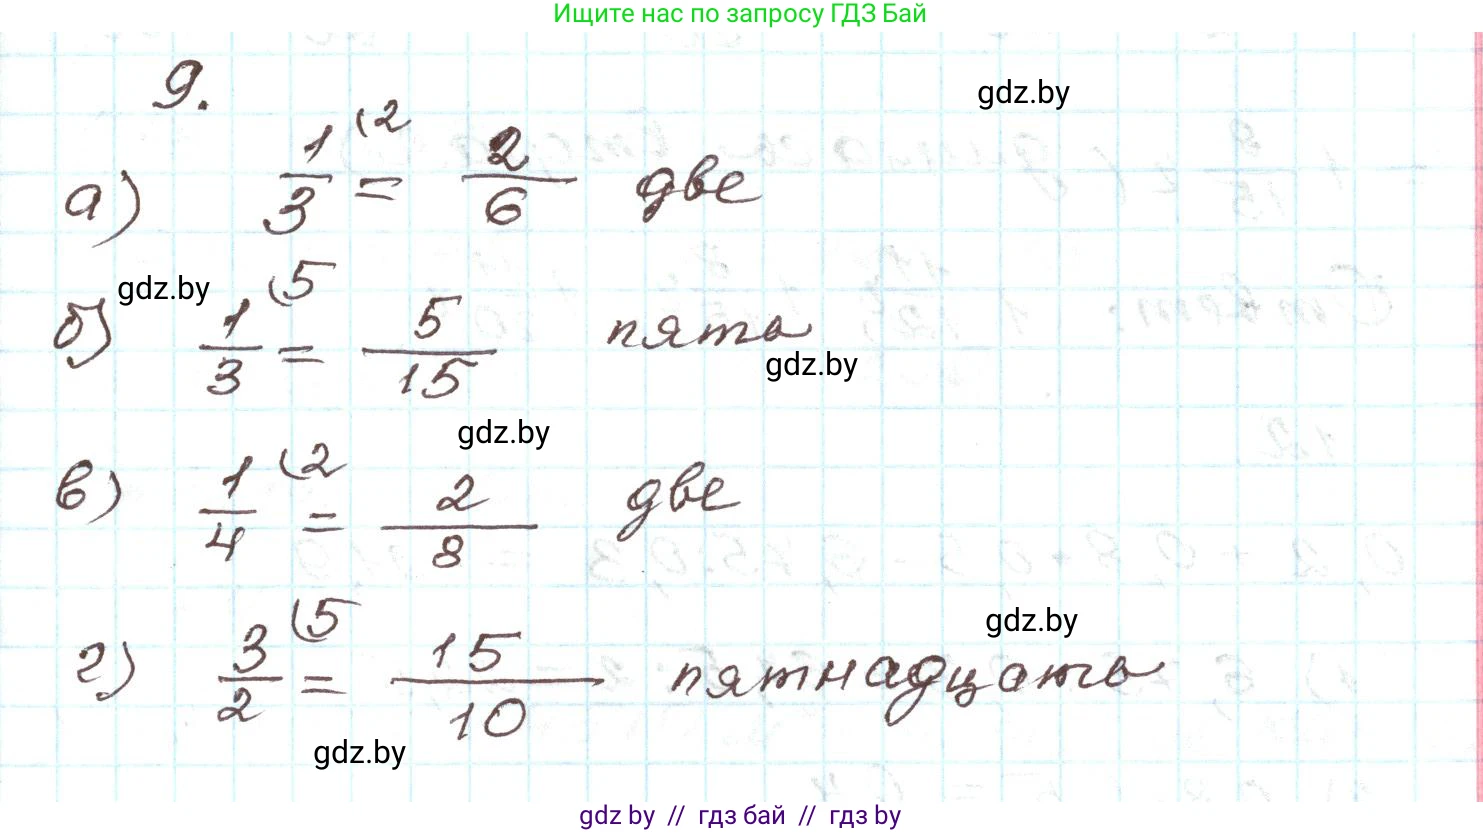 Ищите нас по запросу ГДЗ Бай
9.
gdz.by
а) 1/3 (2 = 2/6 две
gdz.by
б) 1/3 (5 = 5/15 пять
gdz.by
gdz.by
в) 1/4 (2 = 2/8 две
gdz.by
г) 3/2 (5 = 15/10 пятнадцать
gdz.by
gdz.by // гдз бай // гдз by